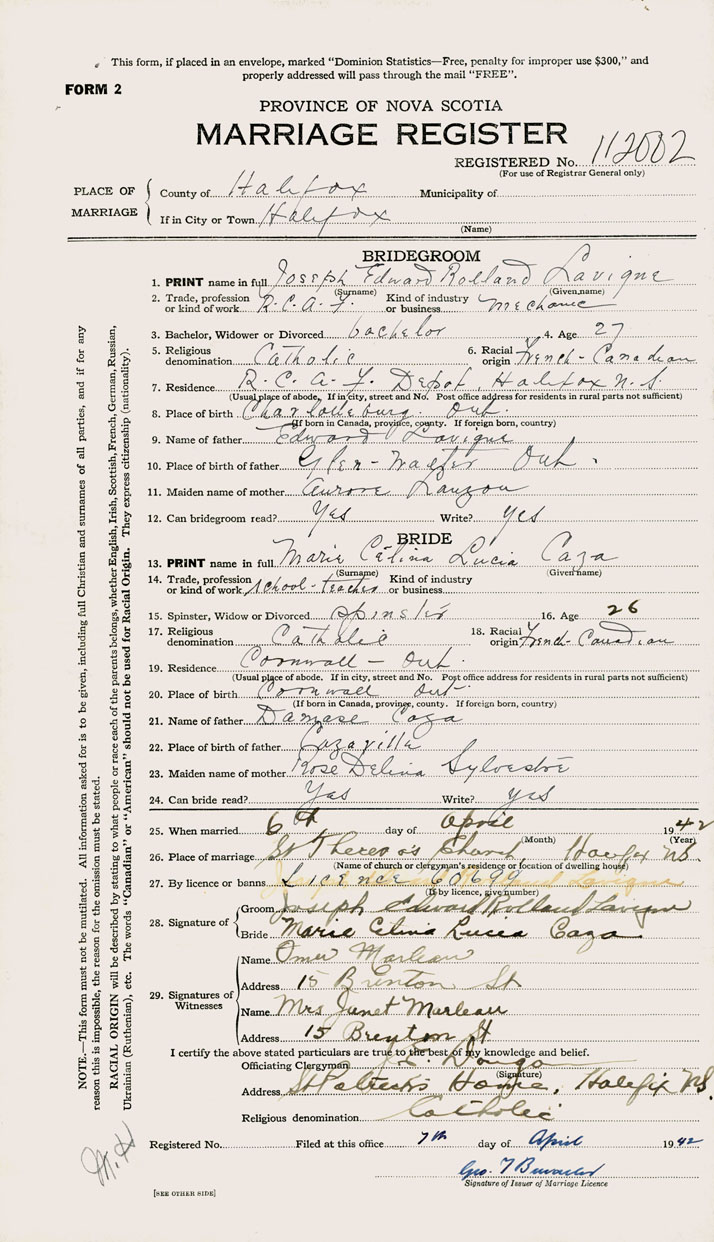 This form, if placed in an envelope, marked "Dominion Statistics—Free, penalty for improper use $300," and
properly addressed will pass through the mail "FREE".
FORM 2
PROVINCE OF NOVA SCOTIA
MARRIAGE REGISTER
REGISTERED No. 112082
(For use of Registrar General only)
PLACE OF MARRIAGE
County of Halifax Municipality of
If in City or Town Halifax
(Name)
BRIDEGROOM
1. PRINT name in full Joseph Edward Rolland Lavigne
(Surname) (Given name)
2. Trade, profession or kind of work R.C.A.F. Kind of industry or business Mechanic
3. Bachelor, Widower or Divorced bachelor 4. Age 27
5. Religious denomination Catholic 6. Racial origin French-Canadian
7. Residence R.C.A.F. Depot, Halifax N.S.
(Usual place of abode. If in city, street and No. Post office address for residents in rural parts not sufficient)
8. Place of birth Charlotteburg. Ont.
(If born in Canada, province, county. If foreign born, country)
9. Name of father Edward Lavigne
10. Place of birth of father Glen-Walter Ont.
11. Maiden name of mother Aurore Lauzon
12. Can bridegroom read? Yes Write? Yes
BRIDE
13. PRINT name in full Marie Célina Lucia Caza
(Surname) (Given name)
14. Trade, profession or kind of work school-teacher Kind of industry or business
15. Spinster, Widow or Divorced spinster 16. Age 26
17. Religious denomination Catholic 18. Racial origin French-Canadian
19. Residence Cornwall - Ont.
(Usual place of abode. If in city, street and No. Post office address for residents in rural parts not sufficient)
20. Place of birth Cornwall Ont.
(If born in Canada, province, county. If foreign born, country)
21. Name of father Damase Caza
22. Place of birth of father Cazaville
23. Maiden name of mother Rose Delina Sylvestre
24. Can bride read? Yes Write? Yes
25. When married 6th day of April 1942
(Month) (Year)
26. Place of marriage St Theresa's Church, Halifax NS.
(Name of church or clergyman's residence or location of dwelling house)
27. By licence or banns Licence 60699
(If by licence, give number)
28. Signature of
Groom Joseph Edward Rolland Lavigne
Bride Marie Celina Lucia Caza
29. Signatures of Witnesses
Name Omer Marleau
Address 15 Brenton St
Name Mrs Janet Marleau
Address 15 Brenton St
I certify the above stated particulars are true to the best of my knowledge and belief.
Officiating Clergyman
(Signature)
Address St Patricks Home, Halifax NS.
Religious denomination Catholic
Registered No. Filed at this office 7th day of April 1942
Geo. T
Signature of Issuer of Marriage Licence
[SEE OTHER SIDE]
NOTE.—This form must not be mutilated. All information asked for is to be given, including full Christian and surnames of all parties, and if for any
reason this is impossible, the reason for the omission must be stated.
RACIAL ORIGIN will be described by stating to what people or race each of the parents belongs, whether English, Irish, Scottish, French, German, Russian,
Ukrainian (Ruthenian), etc. The words "Canadian" or "American" should not be used for Racial Origin. They express citizenship (nationality).